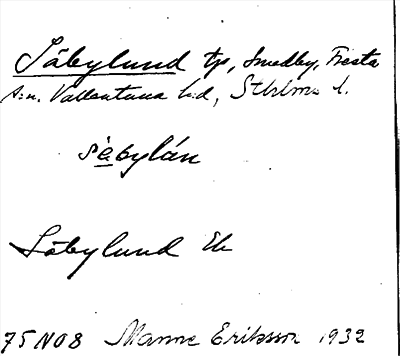 Såbylund tp, Smedby, Fresta
s:n, Vallentuna hd, Sthlms l.
sèbylán
Såbylund Ek
75 NO8 Manne Eriksson 1932